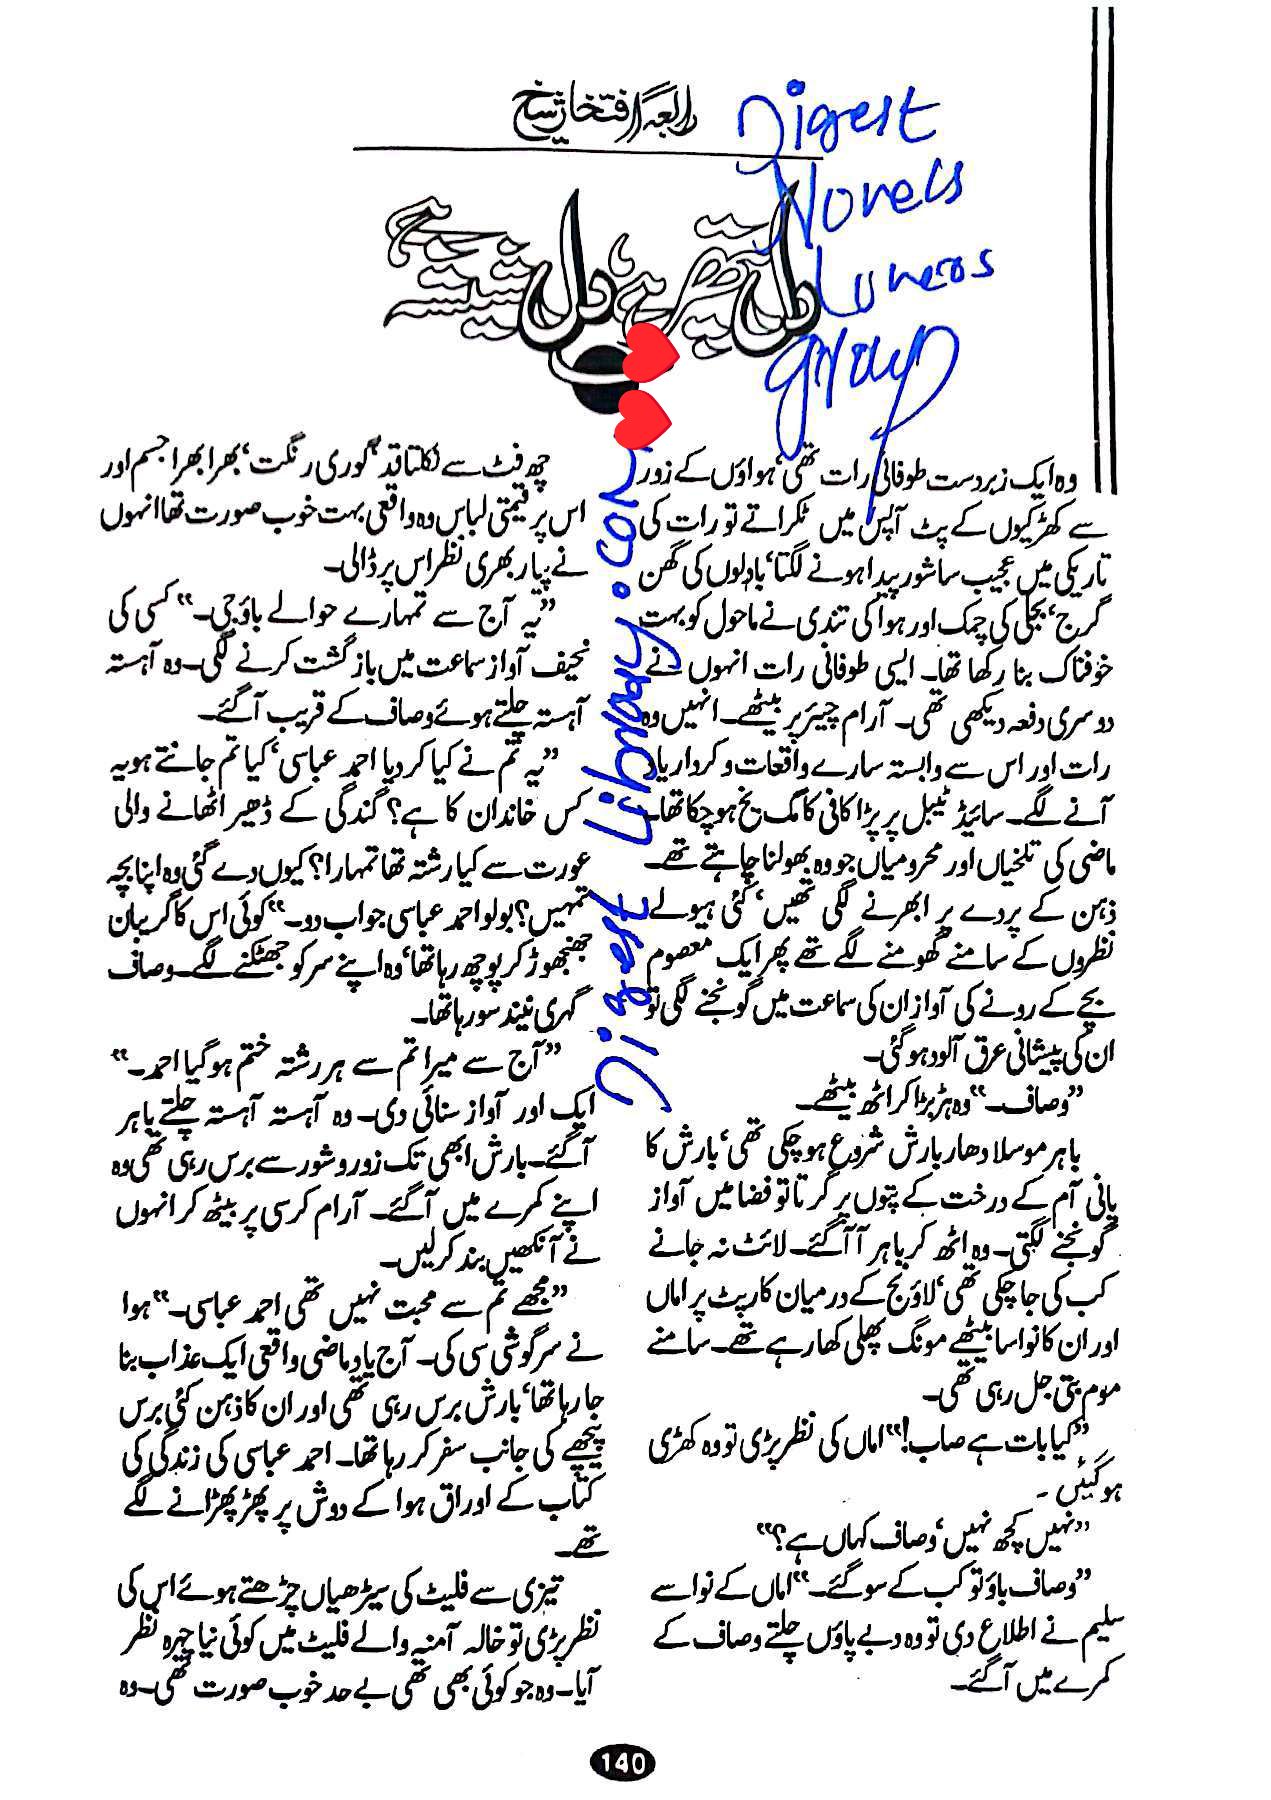 رابعہ افتخار شیخ
دل پتھر ہے، دل شیشہ ہے
Digest
Novels
Lovers
group
وہ ایک زبردست طوفانی رات تھی‘ ہواؤں کے زور
سے کھڑکیوں کے پٹ آپس میں ٹکراتے تو رات کی
تاریکی میں عجیب سا شور پیدا ہونے لگتا‘ بادلوں کی گھن
گرج‘ بجلی کی چمک اور ہوا کی تندی نے ماحول کو بہت
خوفناک بنا رکھا تھا۔ ایسی طوفانی رات انہوں نے
دوسری دفعہ دیکھی تھی۔ آرام چیئر پر بیٹھے۔ انہیں وہ
رات اور اس سے وابستہ سارے واقعات و کردار یاد
آنے لگے۔ سائیڈ ٹیبل پر پڑا کافی کا مگ یخ ہو چکا تھا۔
ماضی کی تلخیاں اور محرومیاں جو وہ بھولنا چاہتے تھے۔
ذہن کے پردے پر ابھرنے لگی تھیں‘ کئی ہیولے
نظروں کے سامنے گھومنے لگے تھے پھر ایک معصوم
بچے کے رونے کی آواز ان کی سماعت میں گونجنے لگی تو
ان کی پیشانی عرق آلود ہوگئی۔
”وصاف۔“ وہ ہڑبڑا کر اٹھ بیٹھے۔
باہر موسلا دھار بارش شروع ہو چکی تھی‘ بارش کا
پانی آم کے درخت کے پتوں پر گرتا تو فضا میں آواز
گونجنے لگتی۔ وہ اٹھ کر باہر آ آگئے۔ لائٹ نہ جانے
کب کی جا چکی تھی‘ لاؤنج کے درمیان کارپٹ پر اماں
اور ان کا نواسا بیٹھے مونگ پھلی کھا رہے تھے۔ سامنے
موم بتی جل رہی تھی۔
”کیا بات ہے صاب!“ اماں کی نظر پڑی تو وہ کھڑی
ہوگئیں۔
”نہیں کچھ نہیں‘ وصاف کہاں ہے؟“
”وصاف باؤ تو کب کے سو گئے۔“ اماں کے نواسے
سلیم نے اطلاع دی تو وہ دبے پاؤں چلتے وصاف کے
کمرے میں آگئے۔
Digest Library.com
چھ فٹ سے نکلتا قد‘ گوری رنگت‘ بھرا بھرا جسم اور
اس پر قیمتی لباس وہ واقعی بہت خوب صورت تھا انہوں
نے پیار بھری نظر اس پر ڈالی۔
”یہ آج سے تمہارے حوالے باؤجی۔“ کسی کی
نحیف آواز سماعت میں بازگشت کرنے لگی۔ وہ آہستہ
آہستہ چلتے ہوئے وصاف کے قریب آگئے۔
”یہ تم نے کیا کر دیا احمد عباسی‘ کیا تم جانتے ہو یہ
کس خاندان کا ہے؟ گندگی کے ڈھیر اٹھانے والی
عورت سے کیا رشتہ تھا تمہارا؟ کیوں دے گئی وہ اپنا بچہ
تمہیں؟ بولو احمد عباسی جواب دو۔“ کوئی اس کا گریبان
جھنجھوڑ کر پوچھ رہا تھا‘ وہ اپنے سر کو جھٹکنے لگے۔ وصاف
گہری نیند سو رہا تھا۔
”آج سے میرا تم سے ہر رشتہ ختم ہو گیا احمد۔“
ایک اور آواز سنائی دی۔ وہ آہستہ آہستہ چلتے باہر
آگئے۔ بارش ابھی تک زور و شور سے برس رہی تھی وہ
اپنے کمرے میں آگئے۔ آرام کرسی پر بیٹھ کر انہوں
نے آنکھیں بند کرلیں۔
”مجھے تم سے محبت نہیں تھی احمد عباسی۔“ ہوا
نے سرگوشی سی کی۔ آج یاد ماضی واقعی ایک عذاب بنا
جا رہا تھا‘ بارش برس رہی تھی اور ان کا ذہن کئی برس
پیچھے کی جانب سفر کر رہا تھا۔ احمد عباسی کی زندگی کی
کتاب کے اوراق ہوا کے دوش پر پھڑپھڑانے لگے
تھے۔
تیزی سے فلیٹ کی سیڑھیاں چڑھتے ہوئے اس کی
نظر پڑی تو خالہ آمنہ والے فلیٹ میں کوئی نیا چہرہ نظر
آیا۔ وہ جو کوئی بھی تھی بے حد خوب صورت تھی۔ وہ
140